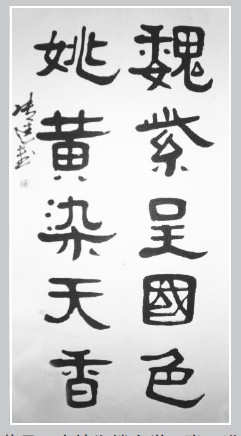 魏紫呈國色
姚黄染天香